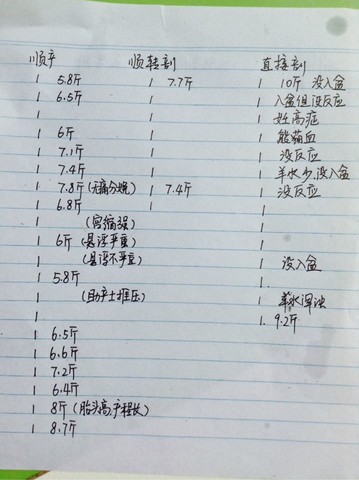 顺产 顺转剖 直接剖
1 5.8斤 1 7.7斤 1 10斤 没入盆
1 6.5斤 1 1 入盆但没反应
1 1 1 妊高症
1 6斤 1 1 能输血
1 7.1斤 1 1 没反应
1 7.4斤 1 1 羊水少,没入盆
1 7.8斤(无痛分娩) 1 7.4斤 1 没反应
1 6.8斤 1 1
1 (宫缩弱) 1
1 6斤(悬浮严重) 1
1 (悬浮不严重) 1 没入盆
1 5.8斤 1
1 (助产士推压) 1 羊水浑浊
1 1 9.2斤
1 6.5斤
1 6.6斤
1 7.2斤
1 6.4斤
1 8斤(胎头高,产程长)
1 8.7斤